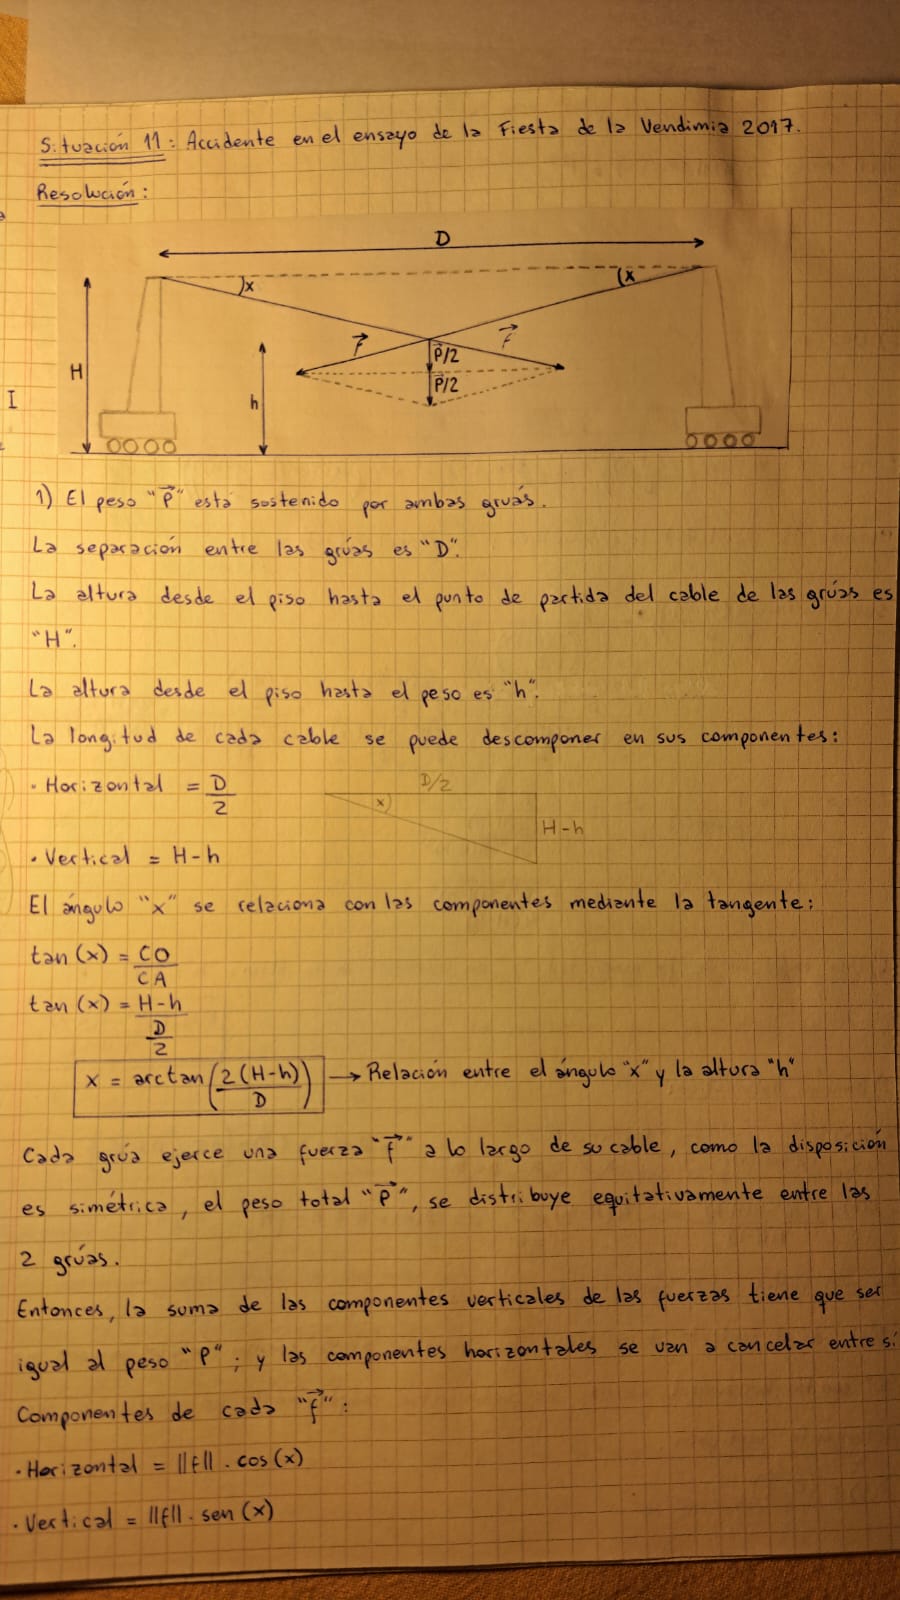 Situación 11: Accidente en el ensayo de la Fiesta de la Vendimia 2017.
Resolución:
D
x
x
H
h
f
f
P/2
P/2
I
1) El peso "P" está sostenido por ambas grúas.
La separación entre las grúas es "D".
La altura desde el piso hasta el punto de partida del cable de las grúas es
"H".
La altura desde el piso hasta el peso es "h".
La longitud de cada cable se puede descomponer en sus componentes:
• Horizontal = D/2
D/2
x
H-h
• Vertical = H-h
El ángulo "x" se relaciona con las componentes mediante la tangente:
tan(x) = CO/CA
tan(x) = (H-h)/(D/2)
x = arctan(2(H-h)/D) → Relación entre el ángulo "x" y la altura "h"
Cada grúa ejerce una fuerza "f" a lo largo de su cable, como la disposición
es simétrica, el peso total "P", se distribuye equitativamente entre las
2 grúas.
Entonces, la suma de las componentes verticales de las fuerzas tiene que ser
igual al peso "P"; y las componentes horizontales se van a cancelar entre sí
Componentes de cada "f":
• Horizontal = ||f|| . cos(x)
• Vertical = ||f|| . sen(x)